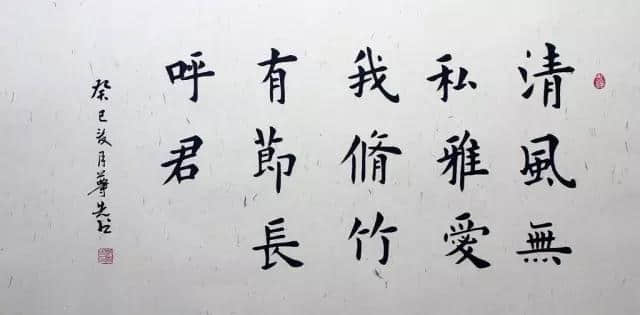 清風無
私雅愛
我脩竹
有節長
呼君
癸巳夏月華先紅